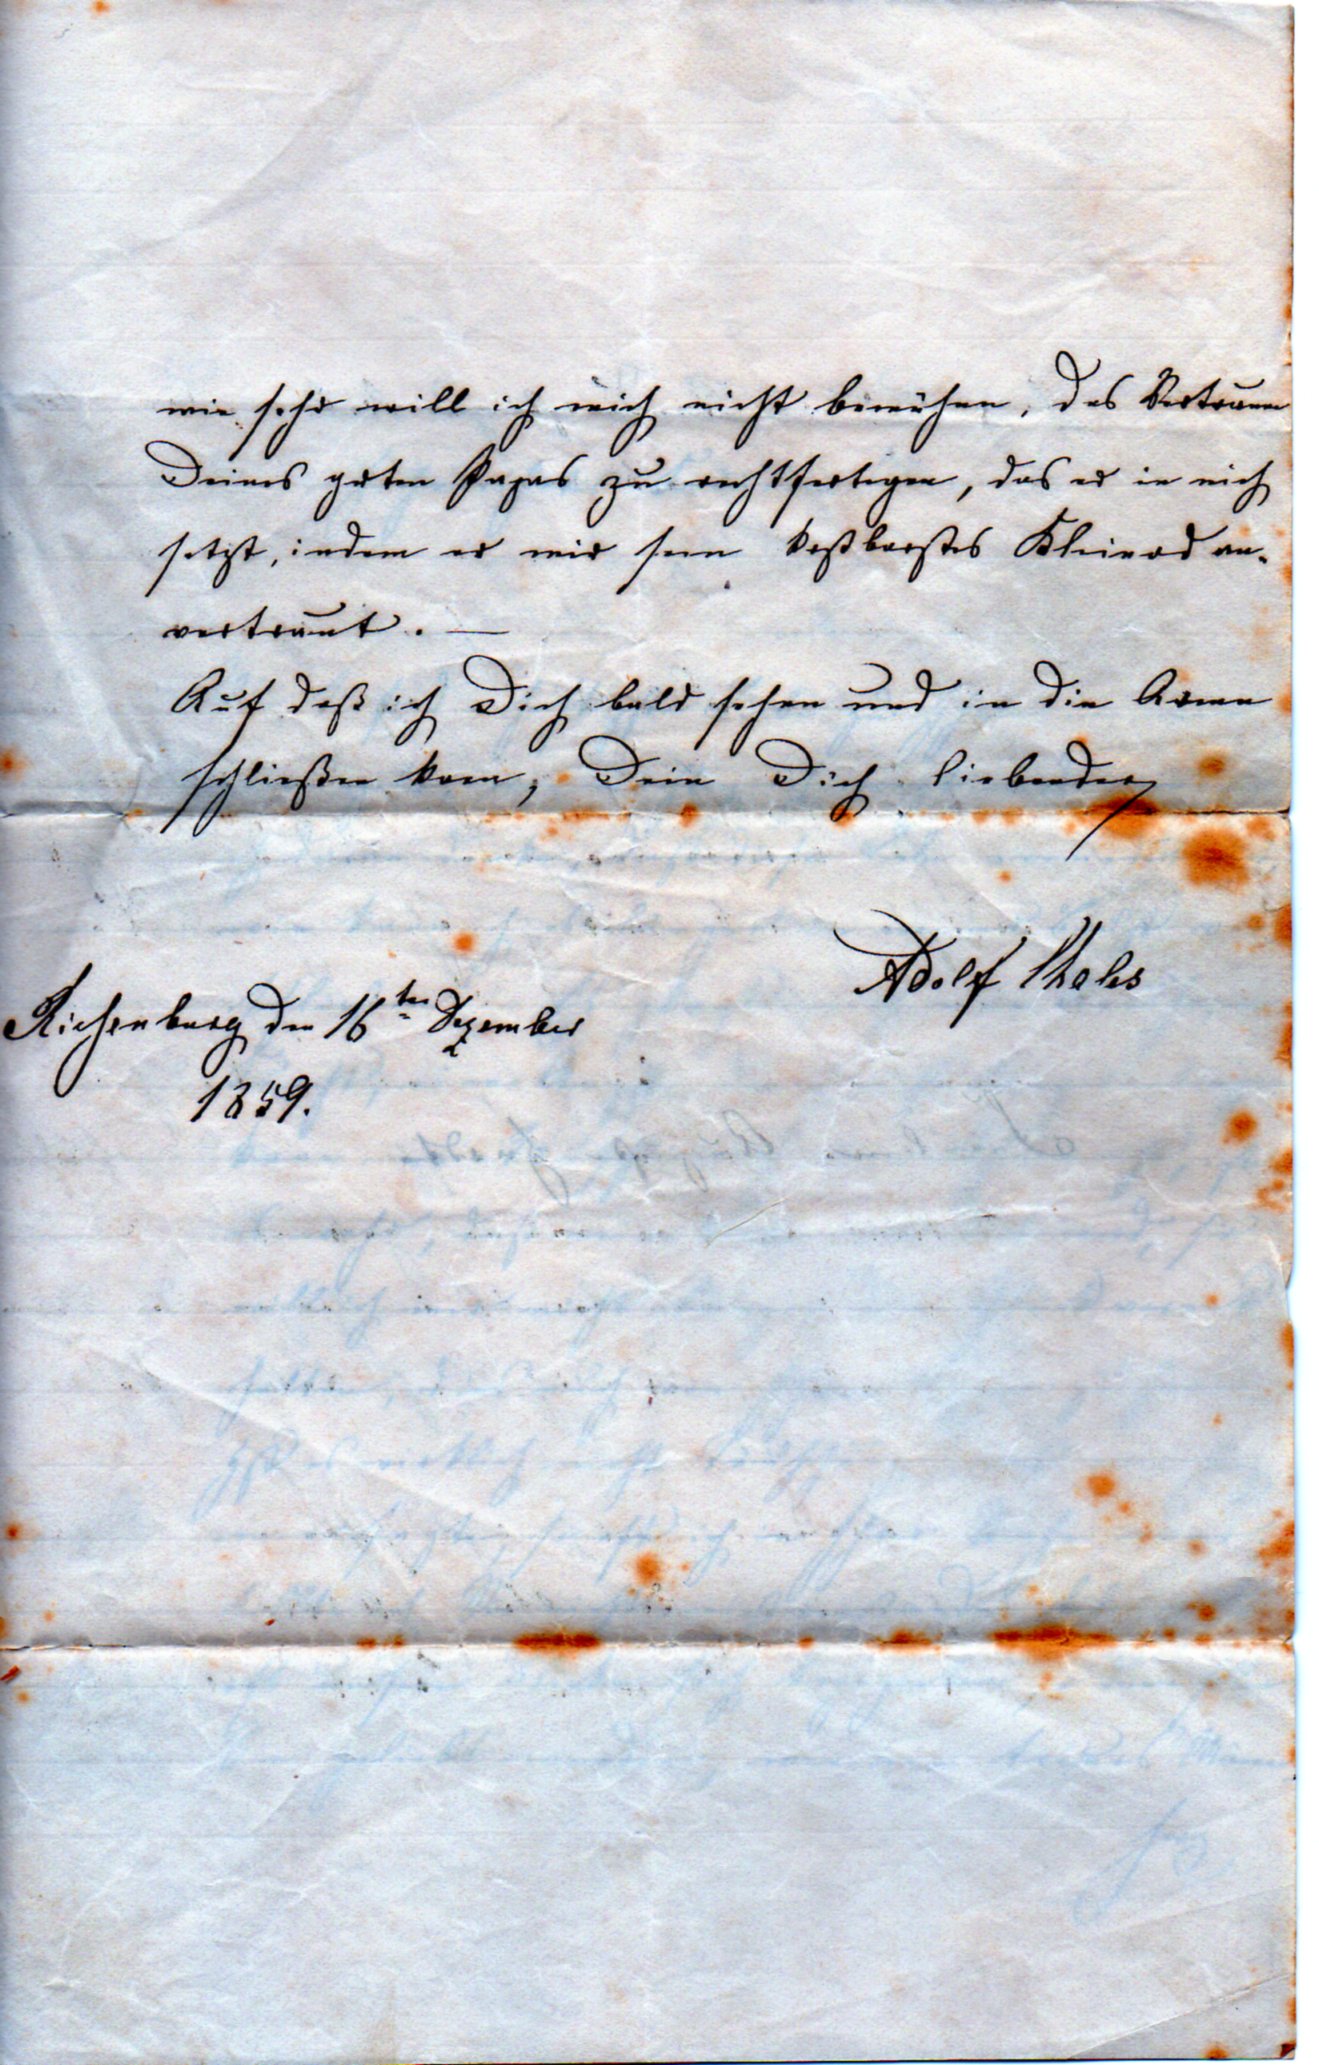 wie sehr will ich mich nicht bemühen, das Vertrauen
Deines guten Papas zu rechtfertigen, das er in mich
setzt, indem er mir sein kostbarstes Kleinod an-
vertraut. —
Auf daß ich Dich bald sehen und in die Arme
schließen kann, Dein Dich liebender
Adolf
Richenburg den 16ten Dezember
1859.